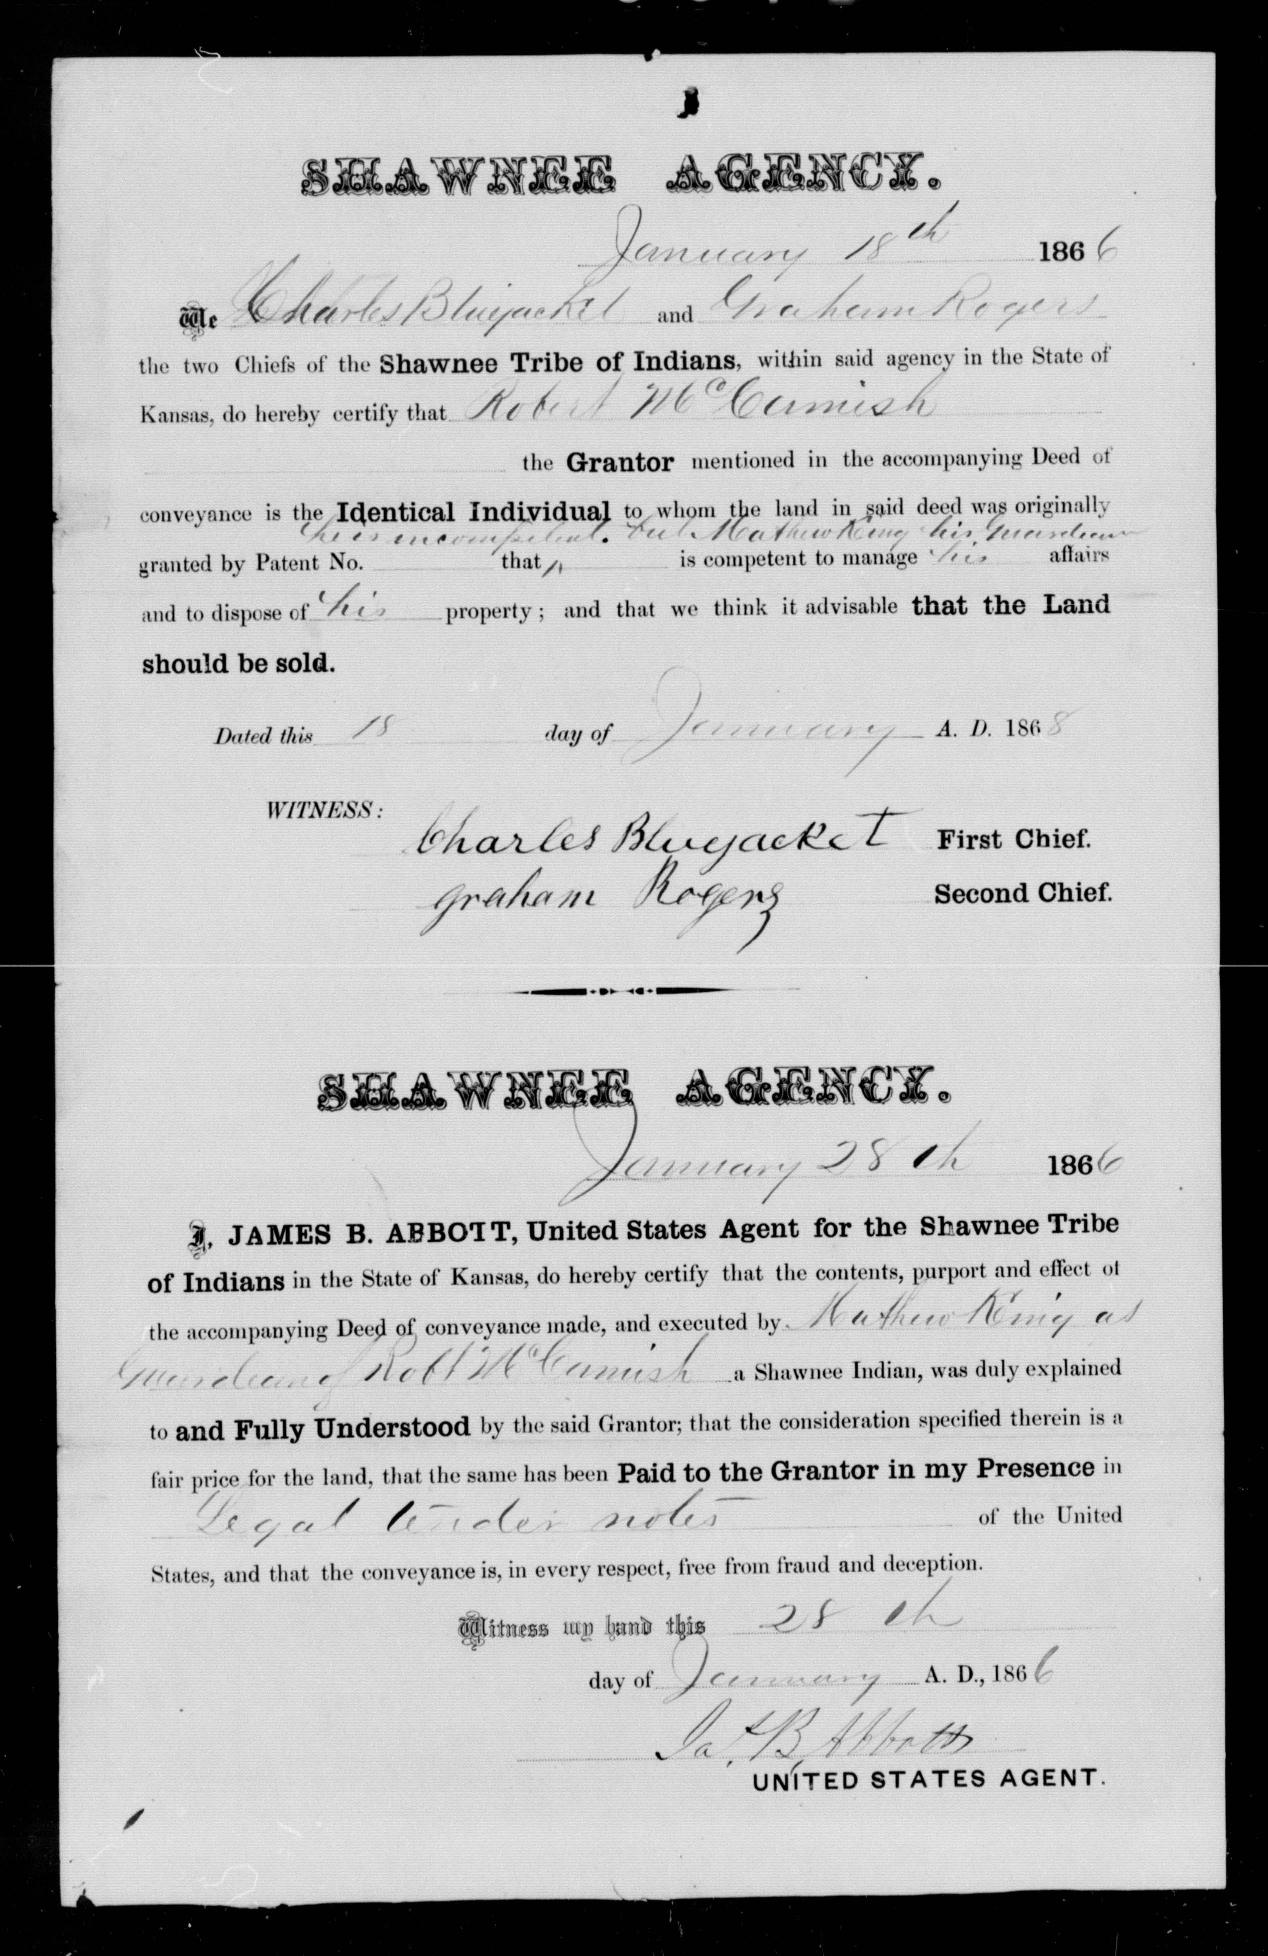 SHAWNEE AGENCY.
January 18th 1866
We Charles Bluejacket and Graham Rogers
the two Chiefs of the Shawnee Tribe of Indians, within said agency in the State of
Kansas, do hereby certify that Robert McCamish
the Grantor mentioned in the accompanying Deed of
conveyance is the Identical Individual to whom the land in said deed was originally
he is incompetent. but Mathew King his Guardian
granted by Patent No. that ^ is competent to manage his affairs
and to dispose of his property; and that we think it advisable that the Land
should be sold.
Dated this 18 day of January A. D. 1868
WITNESS:
Charles Bluejacket First Chief.
Graham Rogers Second Chief.
SHAWNEE AGENCY.
January 28th 1866
I, JAMES B. ABBOTT, United States Agent for the Shawnee Tribe
of Indians in the State of Kansas, do hereby certify that the contents, purport and effect of
the accompanying Deed of conveyance made, and executed by Mathew King as
Guardian of Robt McCamish a Shawnee Indian, was duly explained
to and Fully Understood by the said Grantor; that the consideration specified therein is a
fair price for the land, that the same has been Paid to the Grantor in my Presence in
Legal tender notes of the United
States, and that the conveyance is, in every respect, free from fraud and deception.
Witness my hand this 28th
day of January A. D., 1866
Jas. B. Abbott
UNITED STATES AGENT.